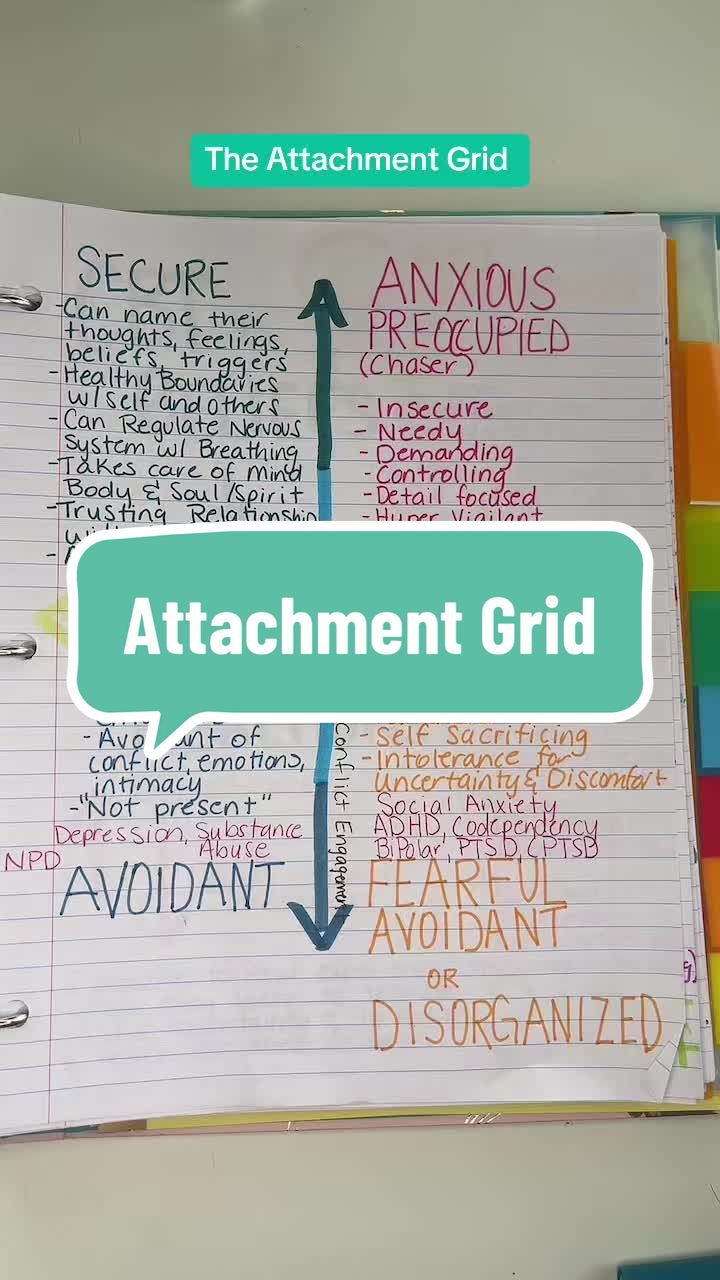 The Attachment Grid
SECURE
-Can name their
thoughts, feelings,
beliefs, triggers
-Healthy Boundaries
w/self and others
-Can Regulate Nervous
System w/ Breathing
-Takes care of Mind
Body & Soul/Spirit
-Trusting Relationship
ANXIOUS
PREOCCUPIED
(Chaser)
- Insecure
- Needy
- Demanding
- Controlling
- Detail focused
- Hyper Vigilant
Attachment Grid
conflict, emotions,
intimacy
-"Not present"
Depression, Substance
Abuse
NPD
AVOIDANT
Conflict Engagement
- Self Sacrificing
- Intolerance for
Uncertainty & Discomfort
Social Anxiety
ADHD, Codependency
BiPolar, PTSD, CPTSD
FEARFUL
AVOIDANT
OR
DISORGANIZED